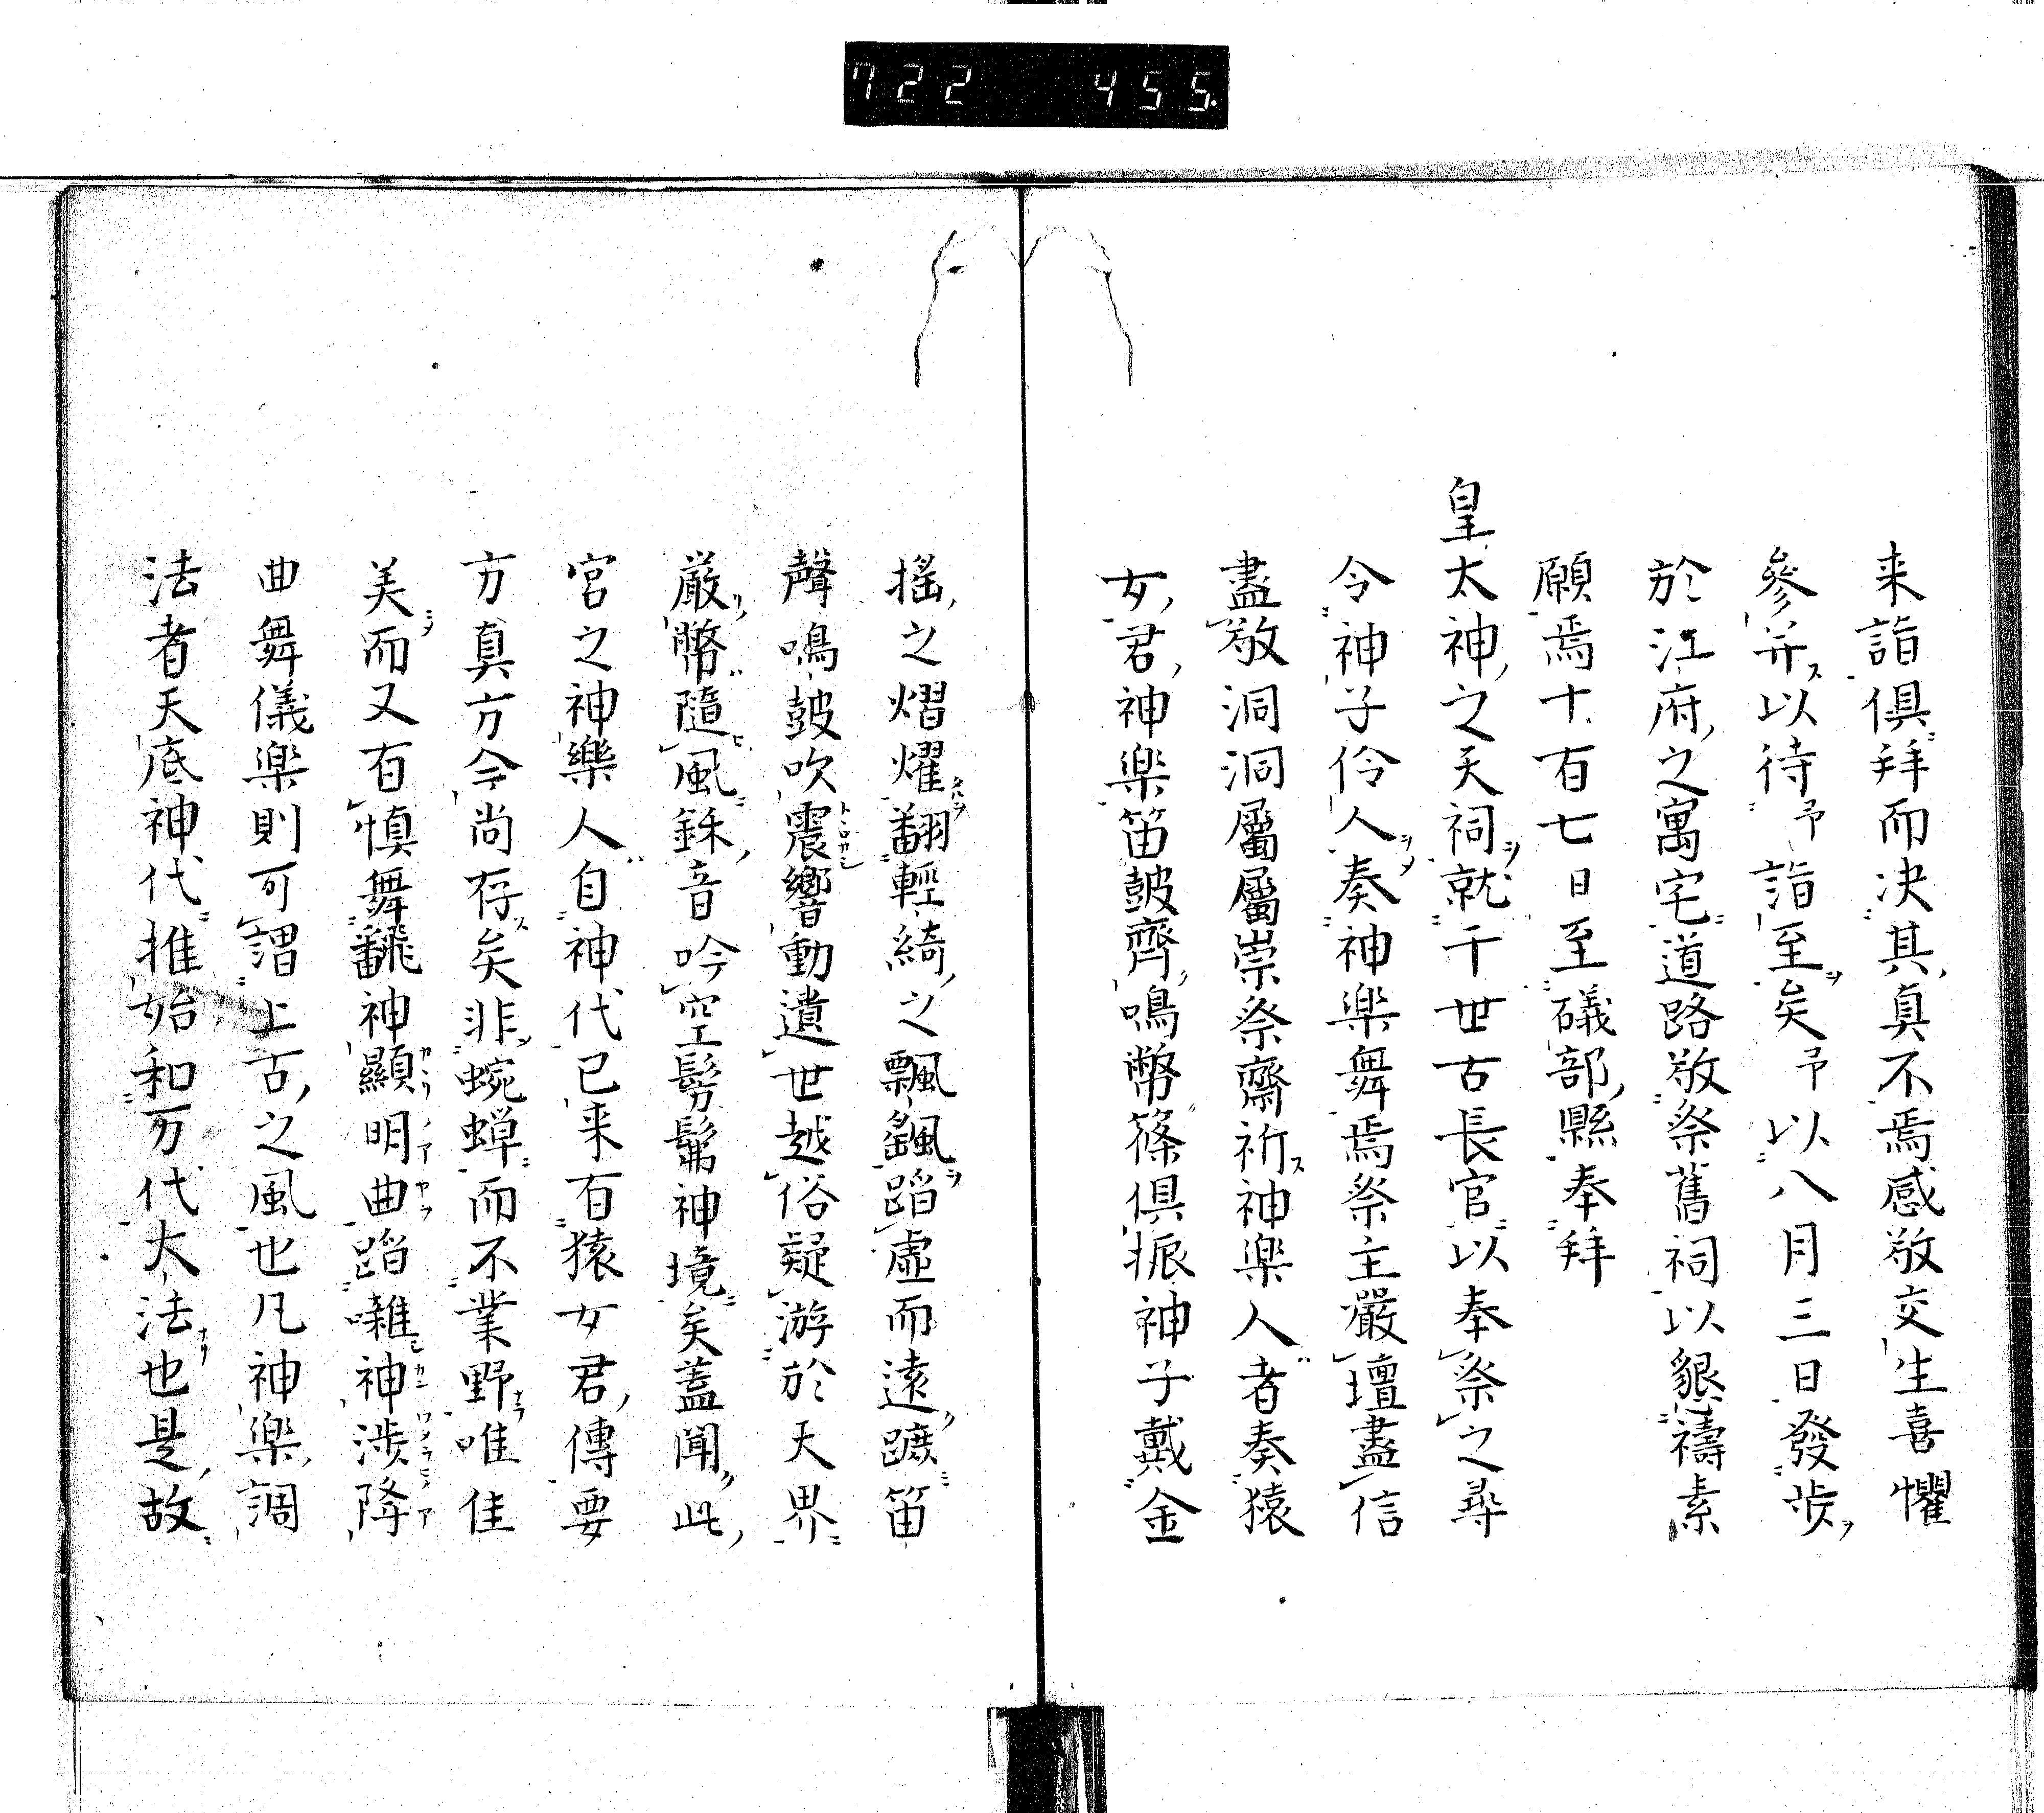 722 455.
来詣俱拜而决其真不焉感敬交生喜懼
參并以待予詣至矣予以八月三日發步
於江府之寓宅道路敬祭舊祠以懇禱素
願焉十有七日至礒部縣奉拜
皇太神之天祠就千世古長官以奉祭之尋
令神子伶人奏神楽舞焉祭主嚴壇盡信
盡敬洞洞屬屬崇祭齋祈神楽人者奏猿
女君神楽笛鼓齊鳴幣篠俱振神子戴金
搖之熠燿翻輕綺之飄颻蹈虛而遠蹠笛
聲鳴鼓吹震響動遺世越俗疑游於天界
厳幣隨風鉌音吟空髣髴神境矣蓋聞此
宮之神樂人自神代已来有猿女君傳要
方真方今尚存矣非蜿蟬而不業野唯佳
美而又有慎舞飜神顯明曲蹈囃神渉降
曲舞儀楽則可謂上古之風也凡神楽調
法者天底神代推始和万代大法也是故